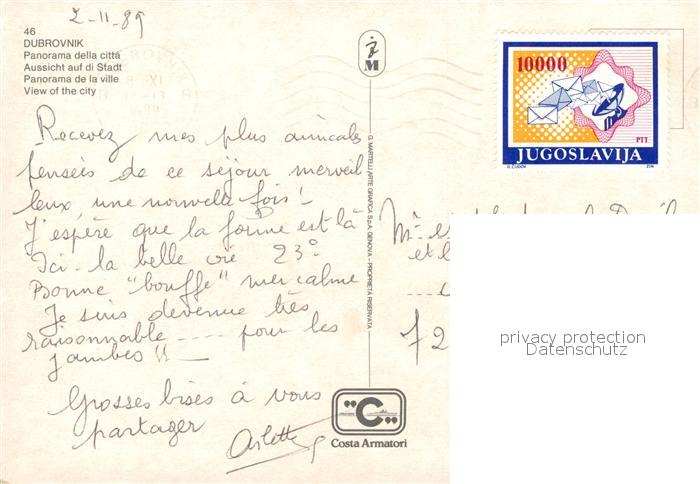 2-11-89
46
DUBROVNIK
Panorama della città
Aussicht auf di Stadt
Panorama de la ville
View of the city
M
10000
PTT
JUGOSLAVIJA
Recevez mes plus amicales
pensées de ce séjour merveil
leux une nouvelle fois !
J'espère que la forme est là
Ici - la belle vie 23°
Bonne "bouffe" mer calme
Je suis devenue très
raisonnable ---- pour les
jambes !! —
Grosses bises à vous
partager
Arlette
G. MARTELLI ARTE GRAFICA S.p.A. GENOVA - PROPRIETÀ RISERVATA
et
72
privacy protection
Datenschutz
"C"
Costa Armatori